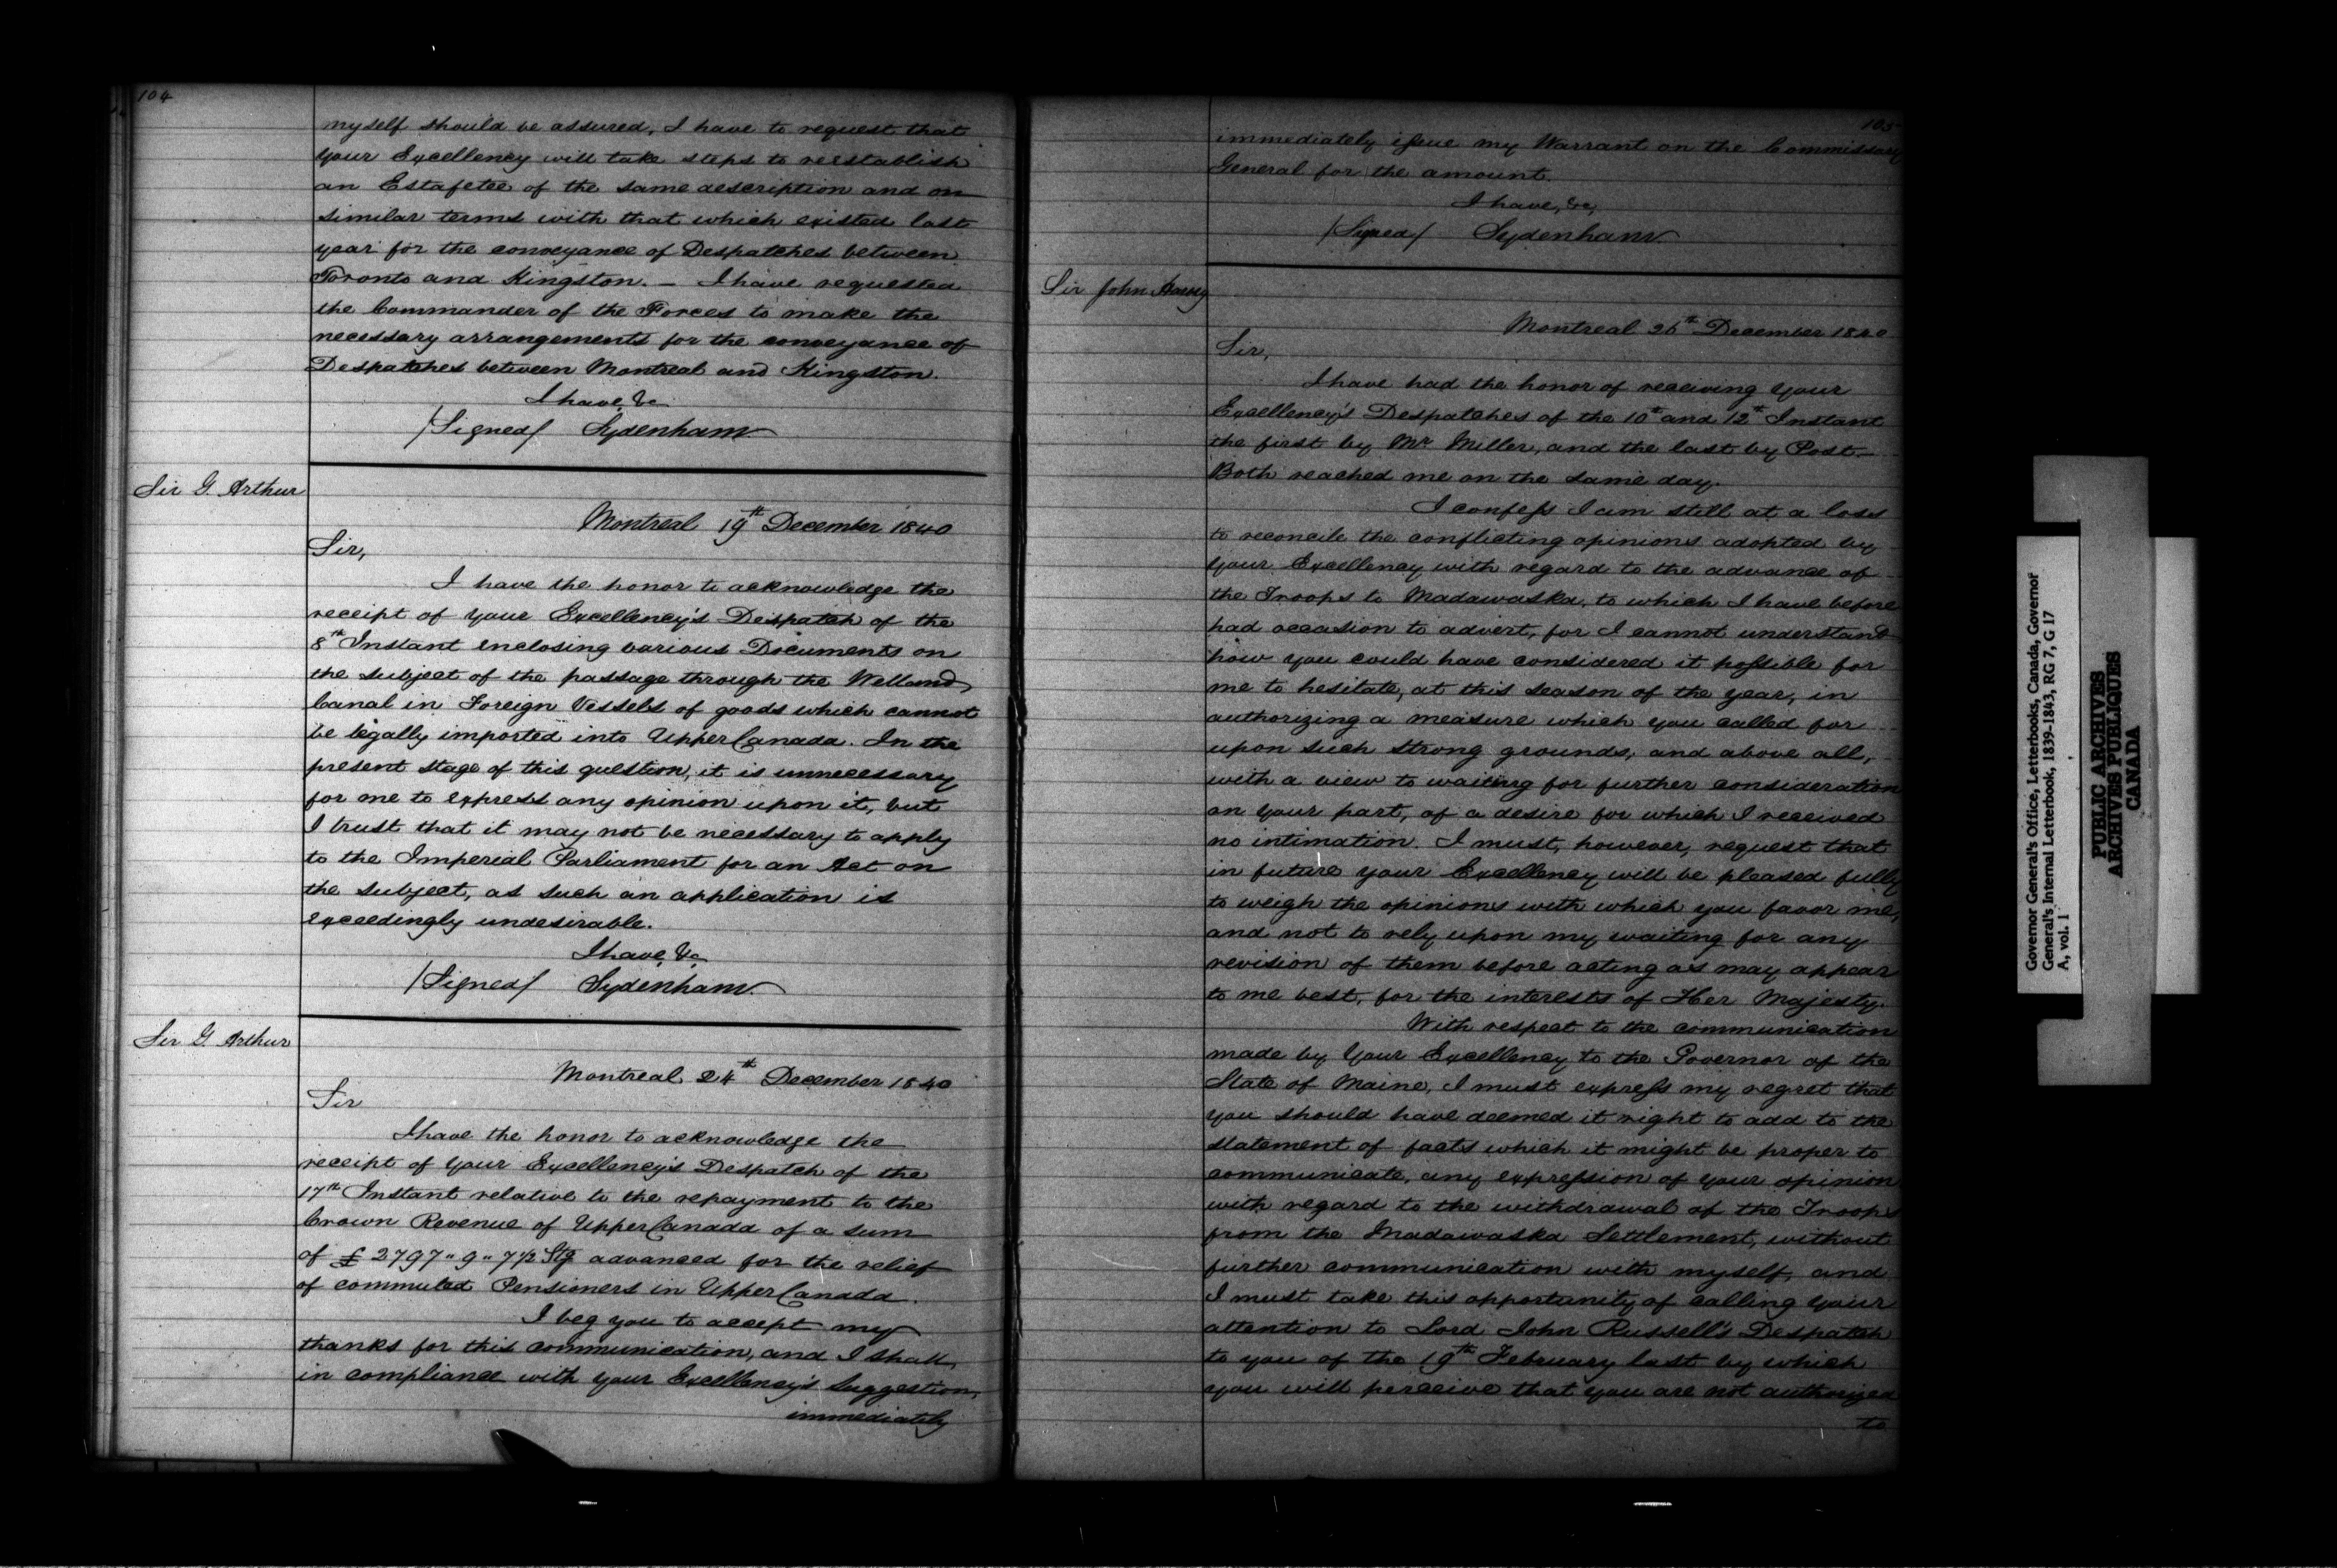 104
myself should be assured, I have to request that
your Excellency will take steps to reestablish
an Estafette of the same description and on
similar terms with that which existed last
year for the conveyance of Despatches between
Toronto and Kingston. — I have requested
the Commander of the Forces to make the
necessary arrangements for the conveyance of
Despatches between Montreal and Kingston.
I have, &c
/Signed/ Sydenham
Sir G. Arthur
Montreal 19th December 1840
Sir,
I have the honor to acknowledge the
receipt of your Excellency's Despatch of the
8th Instant enclosing various Documents on
the subject of the passage through the Welland
Canal in Foreign Vessels of goods which cannot
be legally imported into Upper Canada. In the
present stage of this question, it is unnecessary
for me to express any opinion upon it, but
I trust that it may not be necessary to apply
to the Imperial Parliament for an Act on
the subject, as such an application is
exceedingly undesirable.
I have, &c
/Signed/ Sydenham.
Sir G. Arthur
Montreal 24th December 1840
Sir
I have the honor to acknowledge the
receipt of your Excellency's Despatch of the
17th Instant relative to the repayment to the
Crown Revenue of Upper Canada of a sum
of £2797"9"7½ Stg advanced for the relief
of commuted Pensioners in Upper Canada.
I beg you to accept my
thanks for this communication, and I shall,
in compliance with your Excellency's Suggestion,
immediately
105
immediately issue my Warrant on the Commissary
General for the amount.
I have, &c,
/Signed/ Sydenham
Sir John Harvey
Montreal 26th December 1840
Sir,
I have had the honor of receiving your
Excellency's Despatches of the 10th and 12th Instant
the first by Mr Miller, and the last by Post.—
Both reached me on the same day.
I confess I am still at a loss
to reconcile the conflicting opinions adopted by
your Excellency with regard to the advance of
the Troops to Madawaska, to which I have before
had occasion to advert, for I cannot understand
how you could have considered it possible for
me to hesitate, at this season of the year, in
authorizing a measure which you called for
upon such strong grounds, and above all,
with a view to waiting for further consideration
on your part, of a desire for which I received
no intimation. I must, however, request that
in future your Excellency will be pleased fully
to weigh the opinions with which you favor me,
and not to rely upon my waiting for any
revision of them before acting as may appear
to me best, for the interests of Her Majesty.
With respect to the communication
made by Your Excellency to the Governor of the
State of Maine, I must express my regret that
you should have deemed it right to add to the
statement of facts which it might be proper to
communicate, any expression of your opinion
with regard to the withdrawal of the Troops
from the Madawaska Settlement, without
further communication with myself, and
I must take this opportunity of calling your
attention to Lord John Russell's Despatch
to you of the 19th February last by which
you will perceive that you are not authorized
to
Governor General's Office, Letterbooks, Canada, Governor
General's Internal Letterbook, 1839-1843, RG 7, G 17
A, vol. 1
PUBLIC ARCHIVES
ARCHIVES PUBLIQUES
CANADA